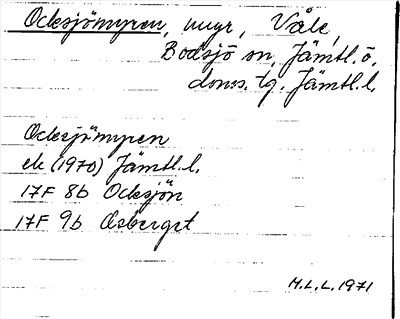 Ocksjömyren, myr, Våle,
Bodsjö sn, Jämtl. ö.
doms. tg. Jämtl. l.
Ocksjömyren
ek (1970) Jämtl. l.
17F 8b Ocksjön
17F 9b Åsberget
H.L.L. 1971